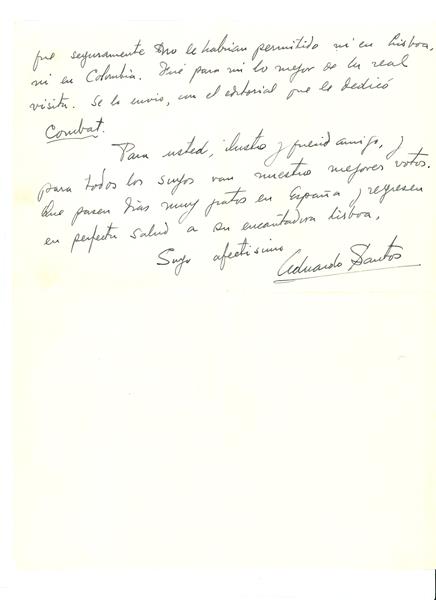 que seguramente no le habrían permitido ni en Lisboa,
ni en Colombia. Fué para mí lo mejor de la real
visita. Se lo envío, con el editorial que le dedicó
Combat.
Para usted, ilustre y querido amigo, y
para todos los suyos van nuestros mejores votos.
Que pasen días muy gratos en España y regresen
en perfecta salud a su encantadora Lisboa,
Suyo afectísimo
Eduardo Santos